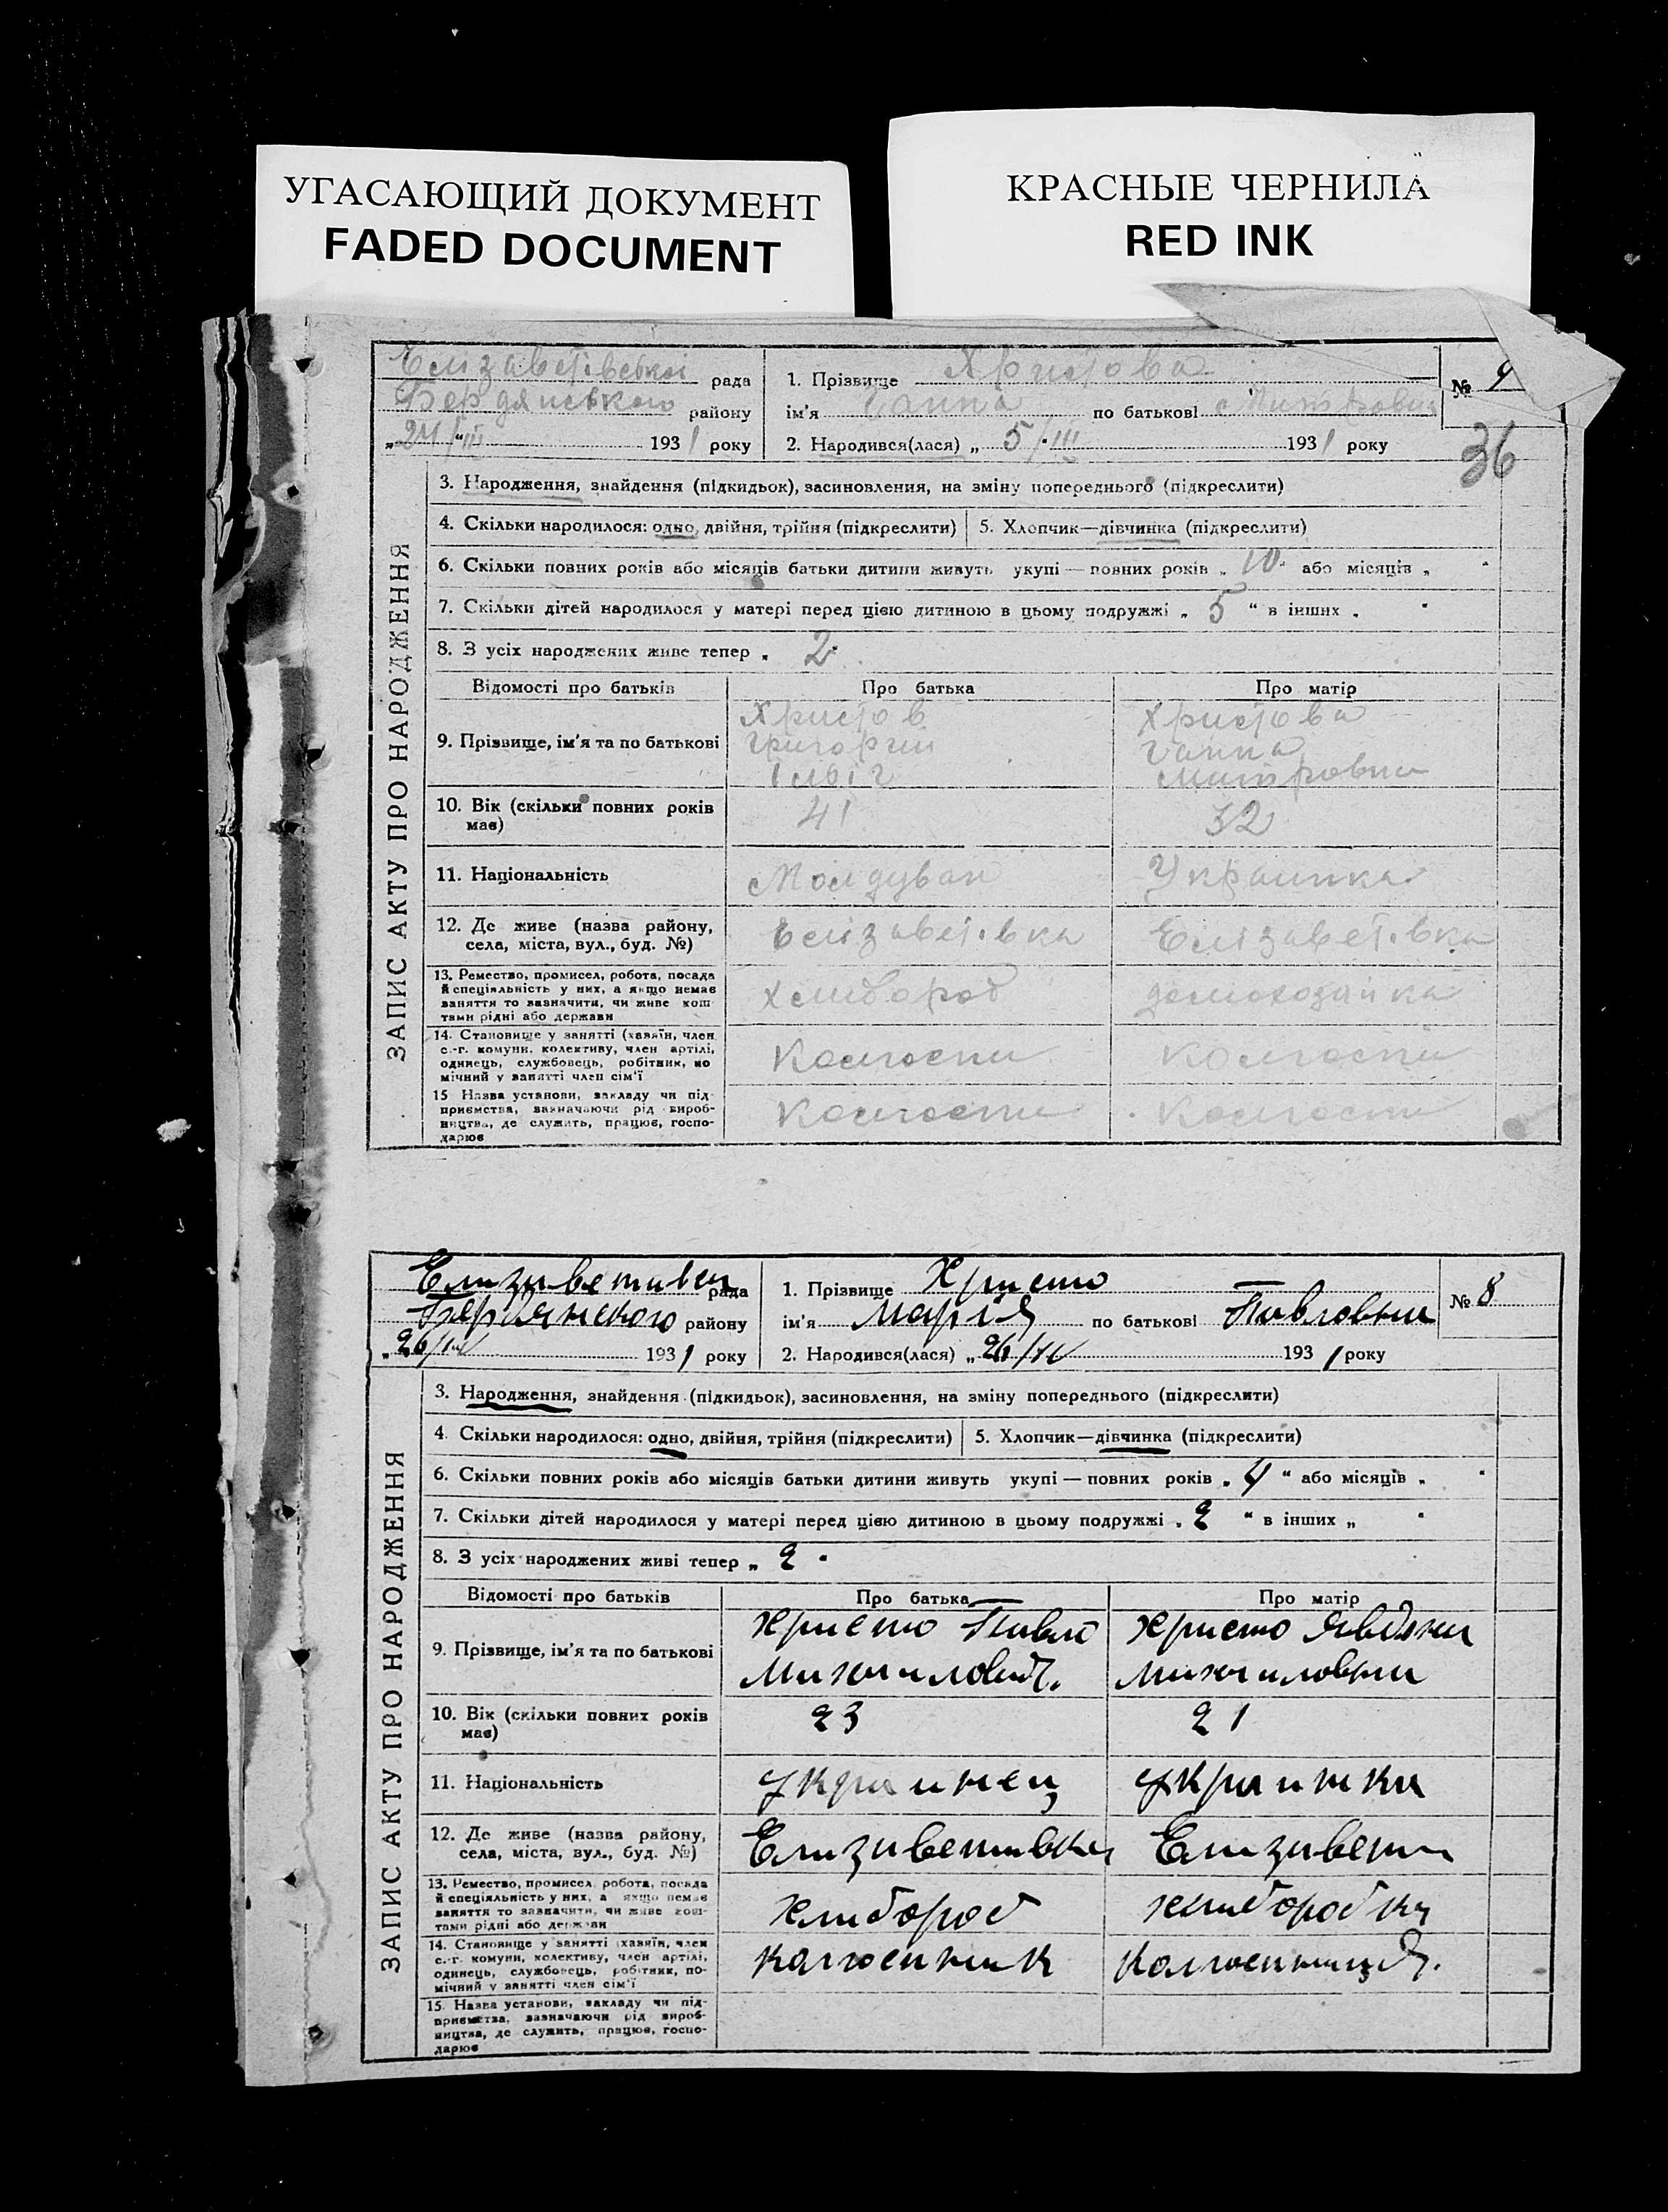 УГАСАЮЩИЙ ДОКУМЕНТ
FADED DOCUMENT
КРАСНЫЕ ЧЕРНИЛА
RED INK
ЗАПИС АКТУ ПРО НАРОДЖЕННЯ
Єлізаветівської рада
Бердянського району
„24/III 1931 року
1. Прізвище Христова
ім'я Ганна по батькові
2. Народився(лася) „ 5/III 1931 року
№ 9
36
3. Народження, знайдення (підкидьок), засиновлення, на зміну попереднього (підкреслити)
4. Скільки народилося: одно, двійня, трійня (підкреслити)
5. Хлопчик—дівчинка (підкреслити)
6. Скільки повних років або місяців батьки дитини живуть укупі — повних років „ 10 “ або місяців „ “
7. Скільки дітей народилося у матері перед цією дитиною в цьому подружжі „ 5 “ в інших „ “
8. З усіх народжених живе тепер „ 2 “
Відомості про батьків Про батька Про матір
9. Прізвище, ім'я та по батькові
Христов Христова
Григорий Ганна
Митровна
10. Вік (скільки повних років має) 41 32
11. Національність Молдуван Украинка
12. Де живе (назва району, Елізаветівка Елізаветівка
села, міста, вул., буд. №)
13. Ремество, промисел, робота, посада
й спеціяльність у них, а якщо немає Хлибороб домохозяйка
заняття то зазначити, чи живе кош-
тами рідні або держави
14. Становище у занятті (хазяїн, член
с.-г. комуни, колективу, член артілі, Колгосп Колгосп
одинець, службовець, робітник, по
мічний у занятті член сім'ї
15 Назва установи, закладу чи під-
приємства, зазначаючи рід вироб- Колгосп Колгосп
ництва, де служить, працює, госпо-
дарює
ЗАПИС АКТУ ПРО НАРОДЖЕННЯ
Елизаветивка рада
Бердянского району
„26/IV 1931 року
1. Прізвище Христо
ім'я Марія по батькові Павловна
2. Народився(лася) „26/IV 1931 року
№ 8
3. Народження, знайдення (підкидьок), засиновлення, на зміну попереднього (підкреслити)
4. Скільки народилося: одно, двійня, трійня (підкреслити)
5. Хлопчик—дівчинка (підкреслити)
6. Скільки повних років або місяців батьки дитини живуть укупі — повних років „ 4 “ або місяців „ “
7. Скільки дітей народилося у матері перед цією дитиною в цьому подружжі „ 2 “ в інших „ “
8. З усіх народжених живі тепер „ 2 “
Відомості про батьків Про батька Про матір
9. Прізвище, ім'я та по батькові
Христо Павло Христо Явджка
Михайлович. Михайловна
10. Вік (скільки повних років має) 23 21
11. Національність Украинец Украинка
12. Де живе (назва району, Елизаветивка Елизавети
села, міста, вул., буд. №)
13. Ремество, промисел, робота, посада
й спеціяльність у них, а якщо немає Хлибороб хлиборобка
заняття то зазначити, чи живе кош-
тами рідні або держави
14. Становище у занятті (хазяїн, член
с.-г. комуни, колективу, член артілі, Колгоспник Колгоспниця.
одинець, службовець, робітник, по-
мічний у занятті член сім'ї
15. Назва установи, закладу чи під-
приємства, зазначаючи рід вироб-
ництва, де служить, працює, госпо-
дарює